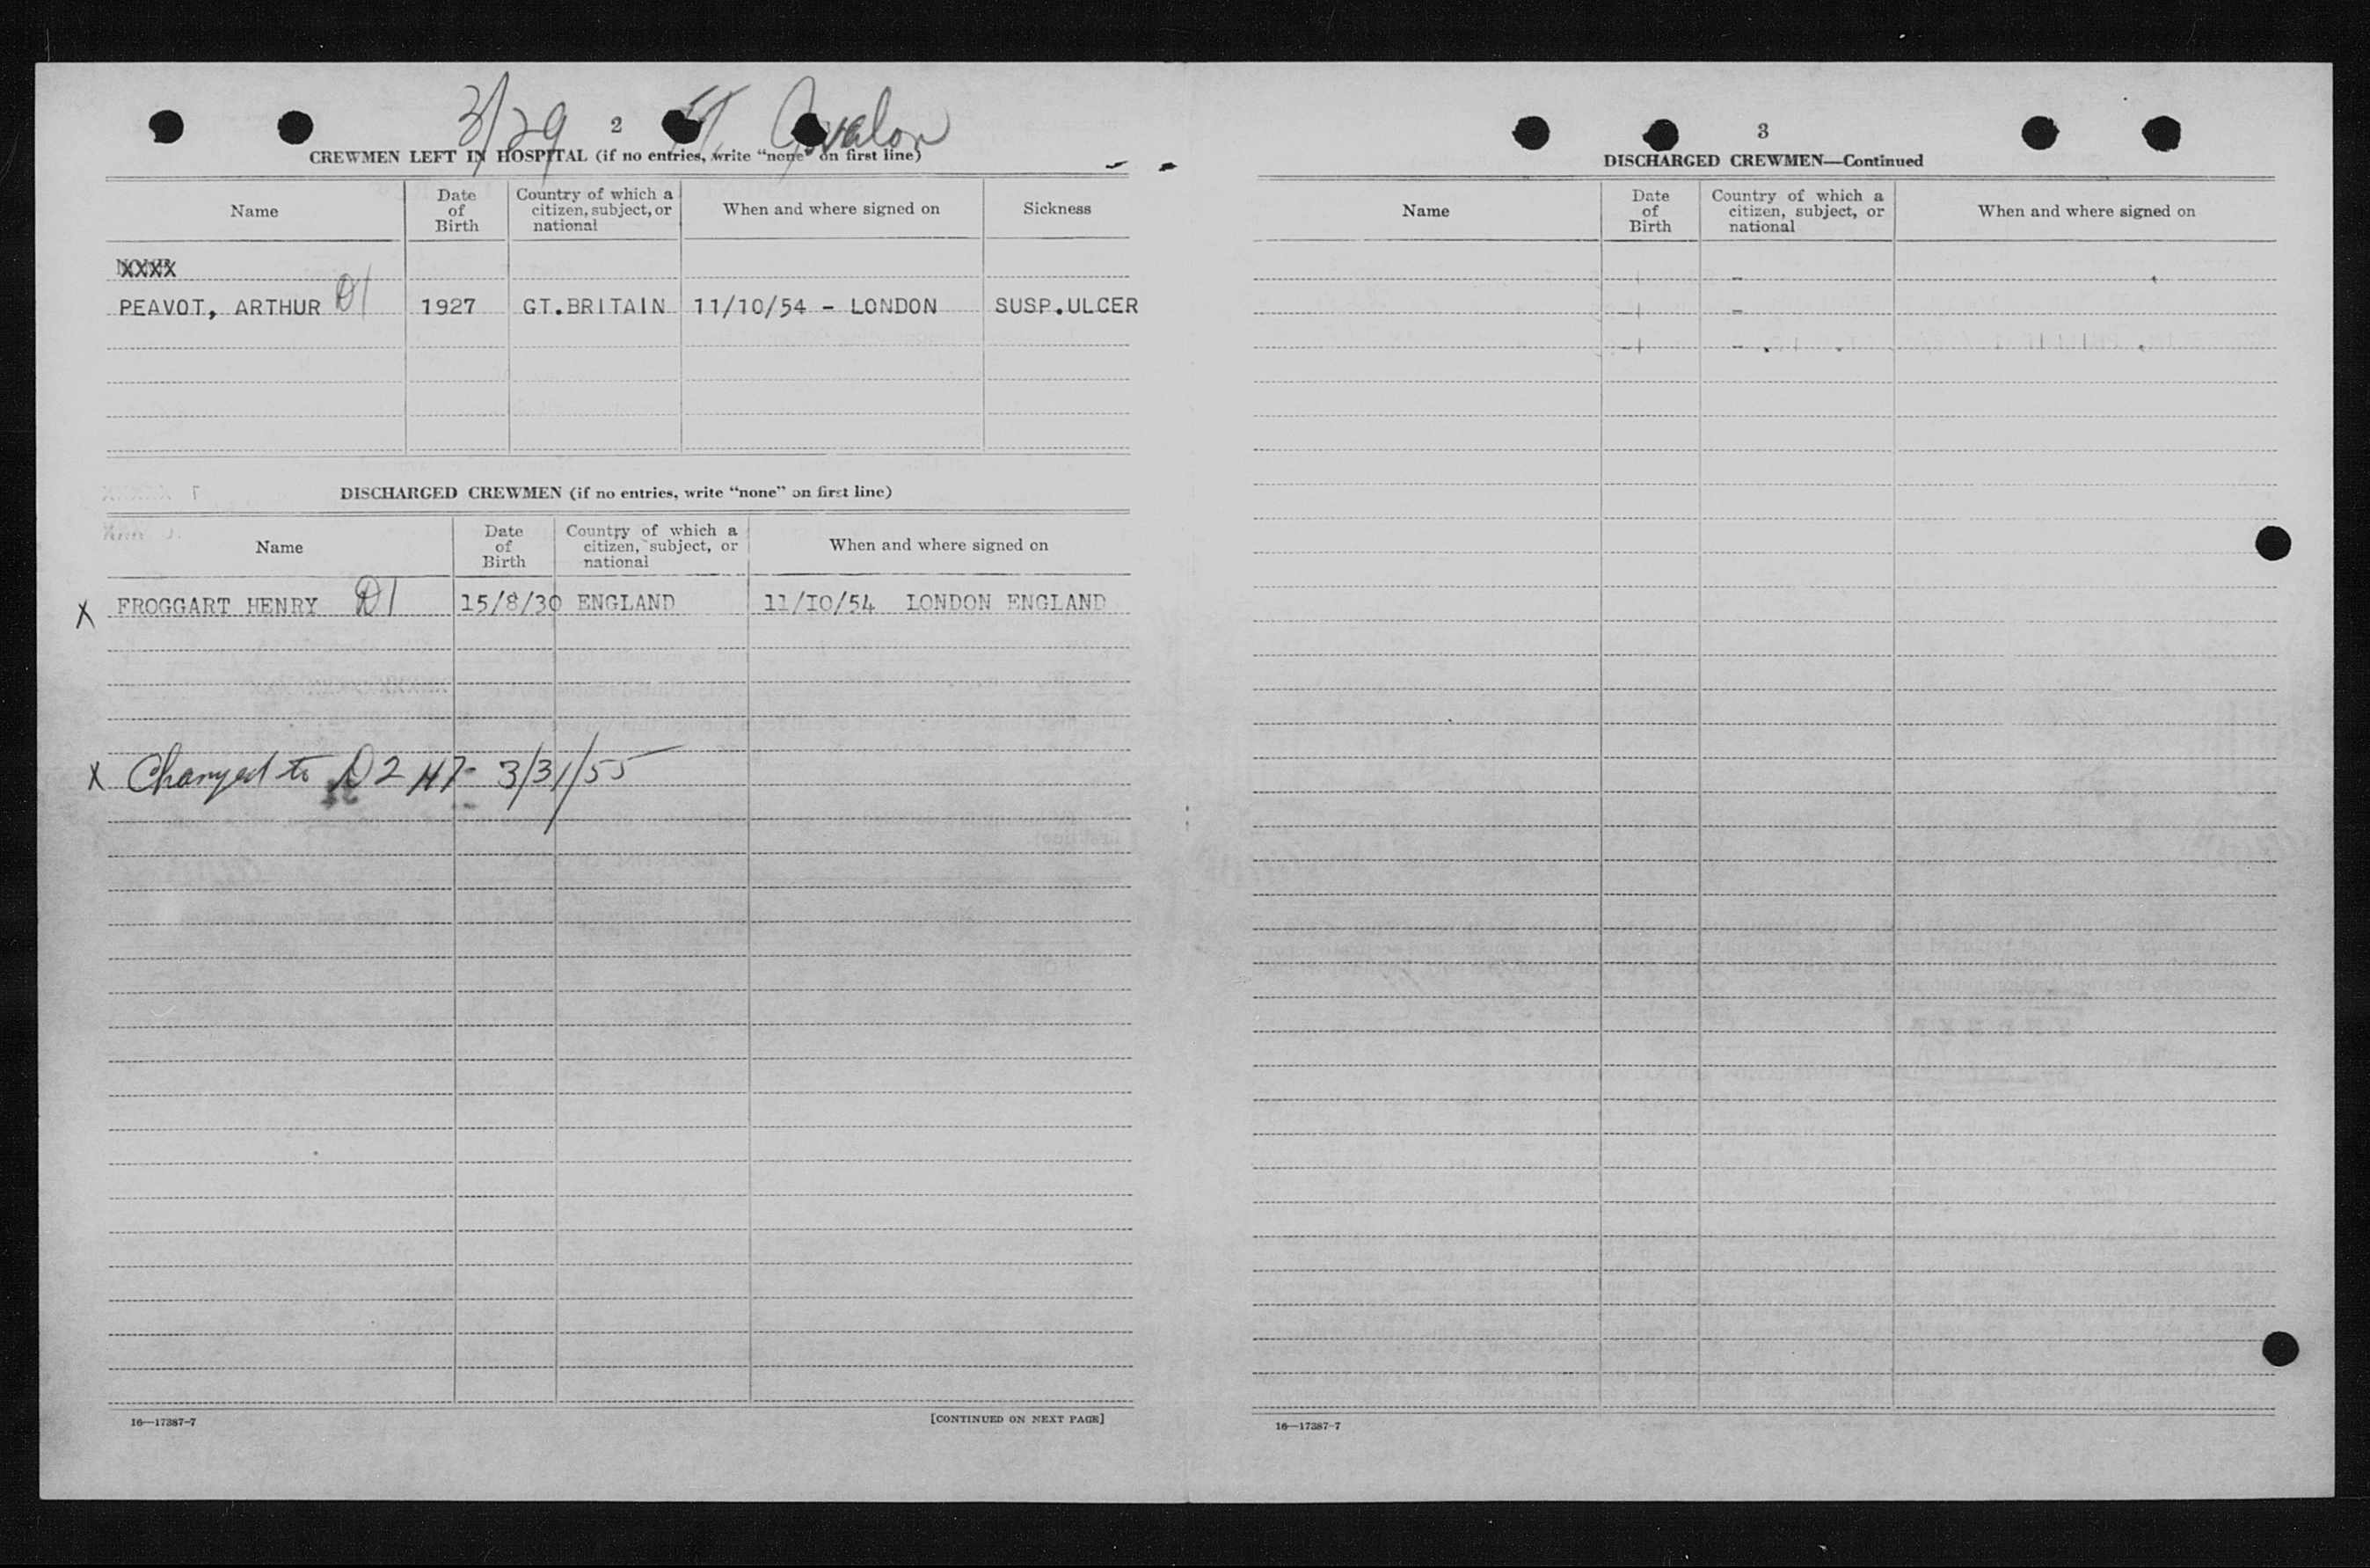 3/29 2 Avalon
CREWMEN LEFT IN HOSPITAL (if no entries, write "none" on first line)
Name
Date of Birth
Country of which a citizen, subject, or national
When and where signed on
Sickness
XXXX
PEAVOT, ARTHUR D1 1927 GT.BRITAIN 11/10/54 - LONDON SUSP.ULCER
DISCHARGED CREWMEN (if no entries, write "none" on first line)
Name
Date of Birth
Country of which a citizen, subject, or national
When and where signed on
X FROGGART HENRY D1 15/8/30 ENGLAND 11/IO/54 LONDON ENGLAND
X Changed to D2 3/31/55
16—17387-7 [CONTINUED ON NEXT PAGE]
3
DISCHARGED CREWMEN—Continued
Name
Date of Birth
Country of which a citizen, subject, or national
When and where signed on
16—17387-7